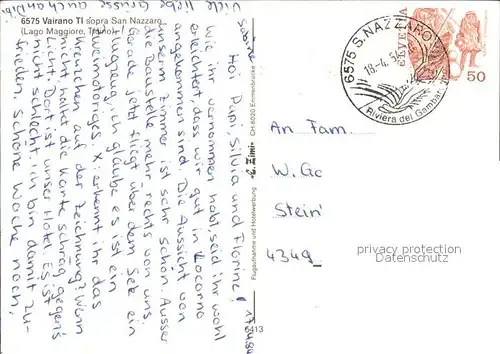 6575 Vairano TI sopra San Nazzaro
(Lago Maggiore, Ticino)
17.4.84
Hoi Papi, Silvia und Florine!
Wie ihr vernommen habt seid ihr wohl
erleichtert, dass wir gut in Locarno
angekommen sind. Die Aussicht von
unserm Zimmer ist sehr schön. Ausser
die Baustelle mehr rechts von uns.
Gerade jetzt fliegt über dem See ein
Flugzeug, ich glaube es ist ein
zweimotoriges. X: erkennt ihr das
Kreuzchen auf der Zeichnung? Wenn
nicht haltet die Karte schräg gegens
Licht. Dort ist unser Hotel. Es ist
nicht schlecht. Ich bin damit zu-
frieden. Schöne Woche noch.
Viele liebe Grüsse auch an
Sabine
CH 6020 Emmenbrücke
Flugaufnahme und Hotelwerbung
6413
6575 S. NAZZARO
18.-4. 84
Riviera del Gambarogno
HELVETIA
50
An Fam.
W. Go
Stein
4349
propriété protégée
Datenschutz